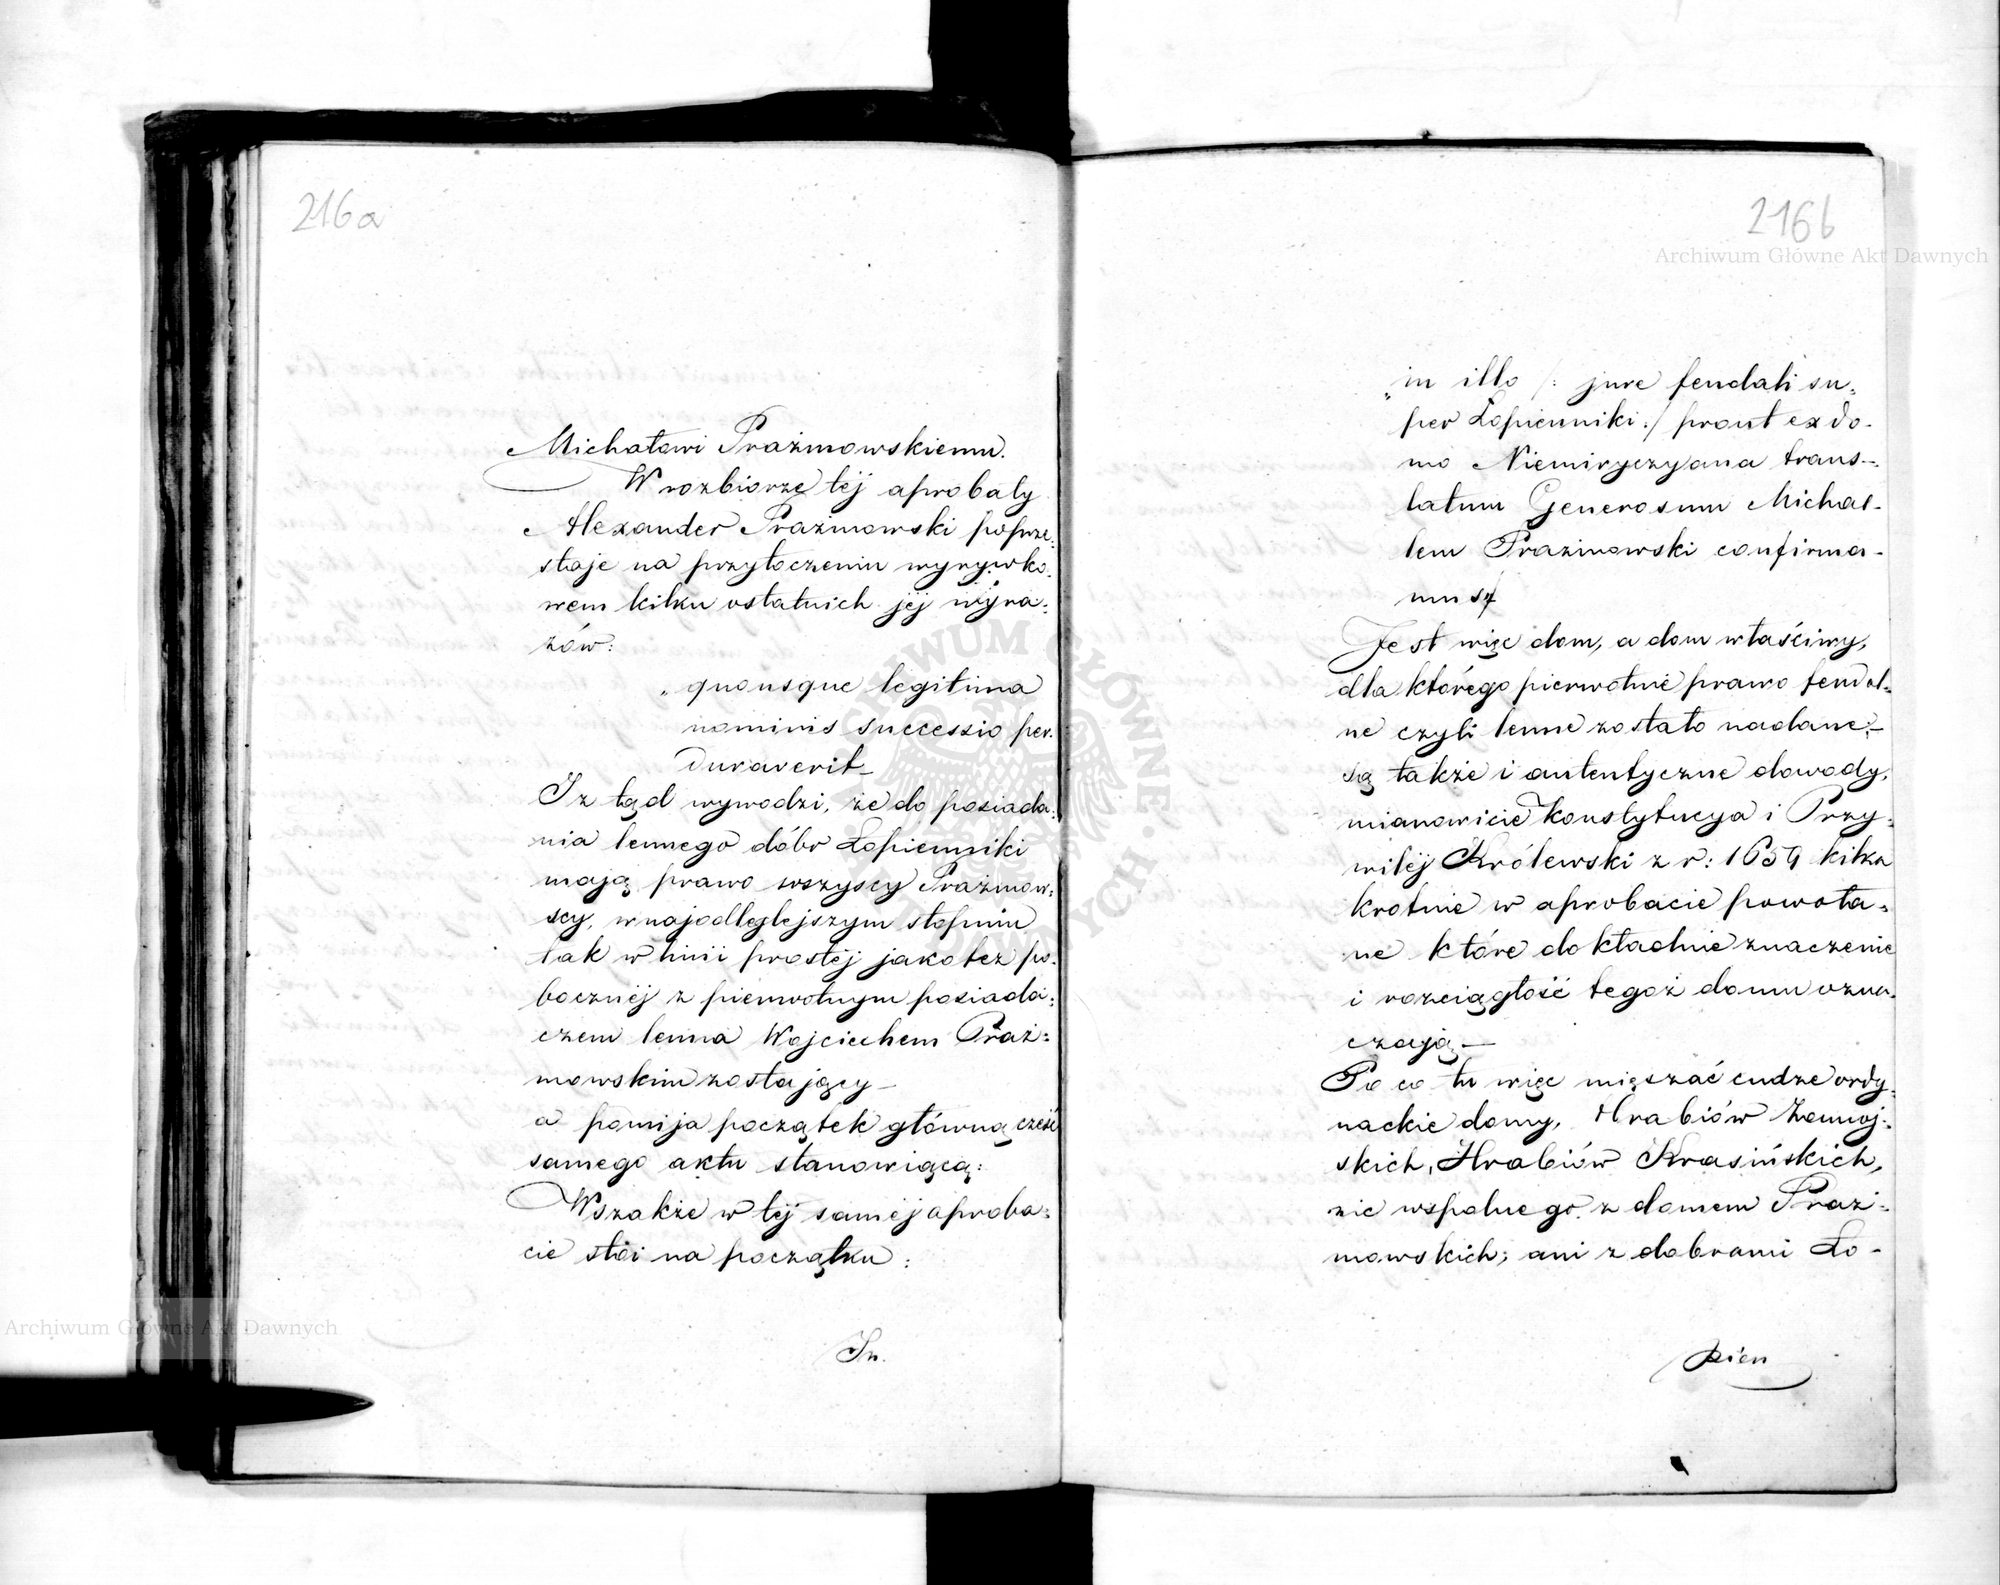 216a
Michałowi Prażmowskiemu.
W rozbiorze tej aprobaty
Alexander Prażmowski poprze:
staje na przytoczeniu wyrywko:
wem kilku ostatnich jej wyra:
zów:
„quousque legitima
nominis successio per:
duraverit_
I z tąd wywodzi, że do posiada:
nia lennego dóbr Łopienniki
mają prawo wszyscy Prażmow:
scy, w najodleglejszym stopniu
tak w linii prostéj jako też po:
bocznéj z pierwotnym posiada:
czem lenna Wojciechem Praż:
mowskim zostający_
a pomija początek główną cześć
samego aktu stanowiącą:
Wszakże w téj saméj aproba:
cie stoi na początku:
In.
216b
Archiwum Główne Akt Dawnych
„in illo /: jure feudali su:
per Łopienniki :/ prout ex do-
mo Niemiryczyana trans-
latum Generosum Michae-
lem Prazmowski confirma-
mus
Jest więc dom, a dom właściwy,
dla którego pierwotnie prawo feudal:
ne czyli lenne zostało nadane;_
są także i autentyczne dowody,
mianowicie Konstytucya i Przy:
wiléj Królewski z r: 1659 kilka
krotnie w aprobacie powoła:
ne które dokładnie znaczenie
i rozciągłość tegoż domu ozna:
czają_
Po co tu więc mięszać cudze ordy:
nackie domy, Hrabiów Zamoj:
skich, Hrabiów Krasińskich,
nic wspolnego z domem Praż:
mowskich; ani z dobrami Ło-
pien
Archiwum Główne Akt Dawnych
ARCHIWUM GŁÓWNE
AKT DAWNYCH